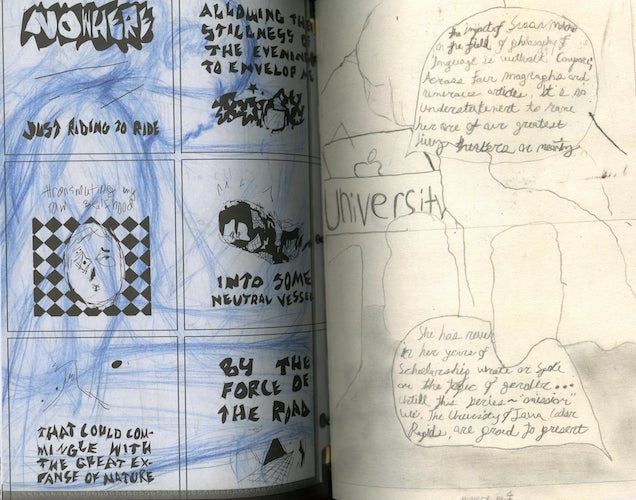 NOWHERE
JUST RIDING TO RIDE
ALLOWING THE
STILLNESS OF
THE EVENING
TO ENVELOP ME
transmuting my
own selfhood
INTO SOME
NEUTRAL VESSEL
THAT COULD COM-
MINGLE WITH
THE GREAT EX-
PANSE OF NATURE
BY THE
FORCE OF
THE ROAD
The impact of Susan
on the field of philosophy of
language is without. Compare
Across four mographs and
numerous articles, it is no
Understatement to name
her one of our greatest
living thinkers on meaning
University
She has never
in her years of
Schoolarship wrote or spoke
on the topic of gender...
Untill this series ~ "omission"
We, The University of Iowa Cedar
Rapids, are proud to present